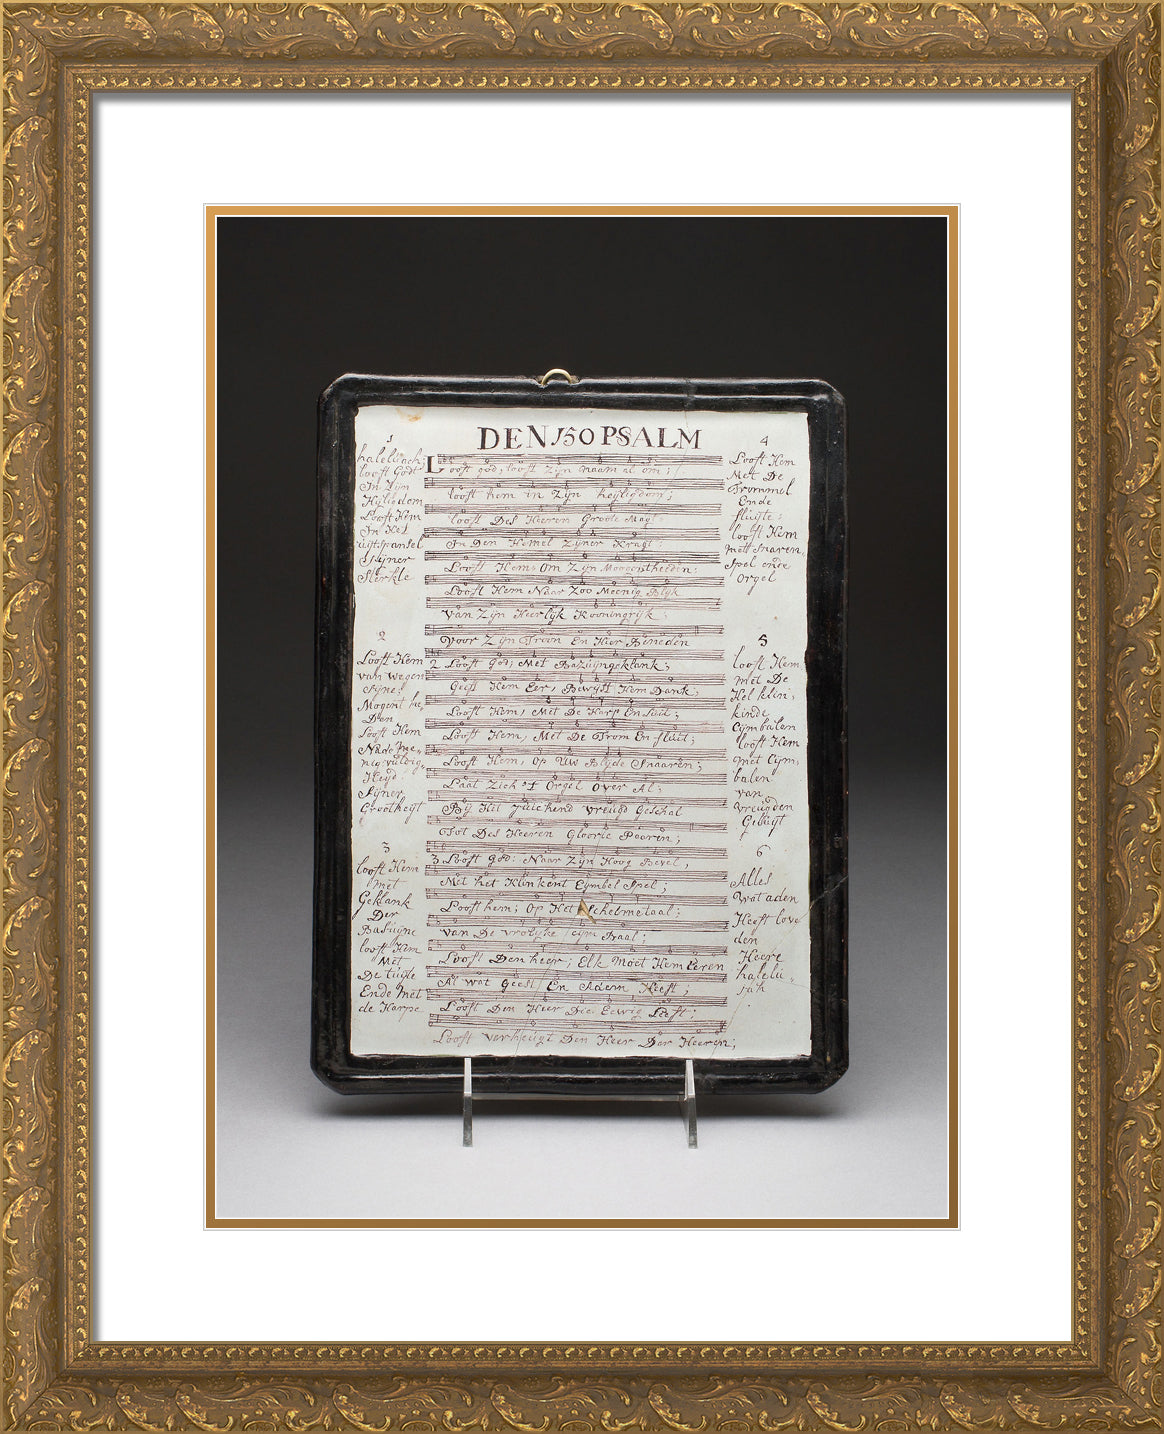 DEN 150 PSALM
1
halelúach;
looft Godt
In Zijn
Hijligdom
Looft Hem
In Het
uijtspansel
Sijner
Sterkte
2
Looft Hem
van wegen
Sijne
Mogent he,
Den
looft Hem
Na de me,
nig vuldig,
Heijd
Sijner
Grootheijt
3
looft Hem
met
Geklank
Der
Basuijne
looft Hem
Met
De luijte
Ende Met
de Harpe
Looft god, looft Zijn naam al om;
looft hem in Zijn heijligdom;
looft Des Heeren Groote Magt:
In Den Hemel Zijner Kragt:
Looft Hem, Om Zijn Moogentheeden:
Looft Hem Naar Zoo Meenig Blijk
Van Zijn Heerlijk Kooningrijk
Voor Zijn Troon En Hier Beneden
2 Looft God, Met Bazuijngeklank;
Geeft Hem Eer, Bewijst Hem Dank;
Looft Hem, Met De Harp En Luit;
Looft Hem, Met De Trom En fluit;
Looft Hem, Op Uw Blijde Snaaren;
Laat Zich 't Orgel Over Al;
Bij Het Juichend vreugd Geschal
Tot Des Heeren Gloorie Paaren;
3 Looft God: Naar Zijn Hoog Bevel,
Met het Klinkent Cijmbel Spel;
Looft hem; Op Het Schelmetaal;
van De vrolijke cijm Baal;
Looft Den heer; Elk Moet Hem Eeren
Al wat Geest En Adem Heeft;
Looft Den Heer Die Eewig Leeft;
Looft verheugt Den Heer Der Heeren;
4
Looft Hem
Met De
Trommel
Ende
fluijte:
looft Hem
mett Snaren,
Spel ende
Orgel
5
looft Hem
met De
Hel klin,
kinde
Cijmbalen
looft Hem
met Cijm,
balen
van
vreugden
Geluijt
6
Alles
Wat aden
Heeft love
den
Heere
halelu,
jah